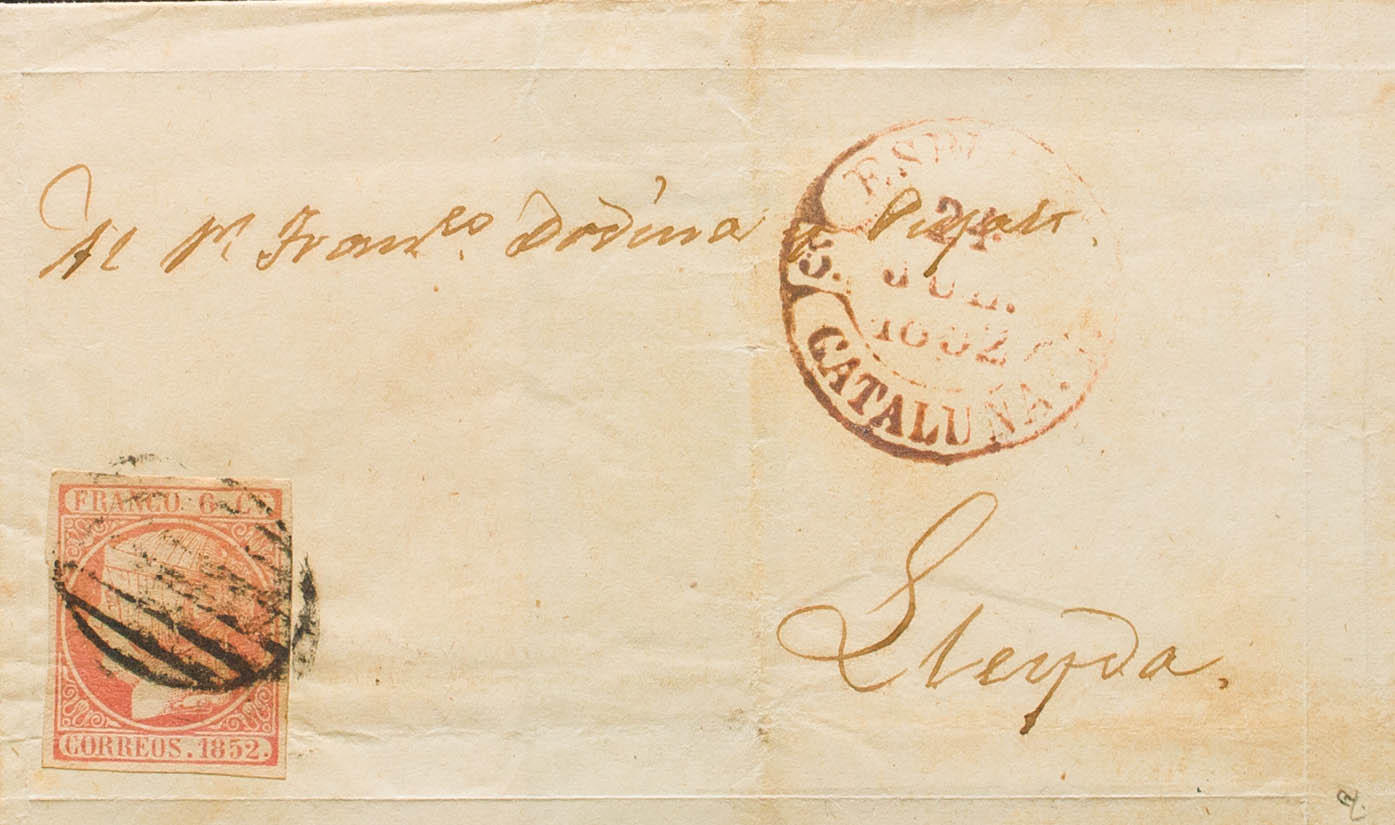 Al Sr. Franco. Dodina y Pujati.
ESP
24
JUL.
1852
5.
CATALUÑA.
FRANCO. 6 Cs
CORREOS. 1852.
Lleyda.